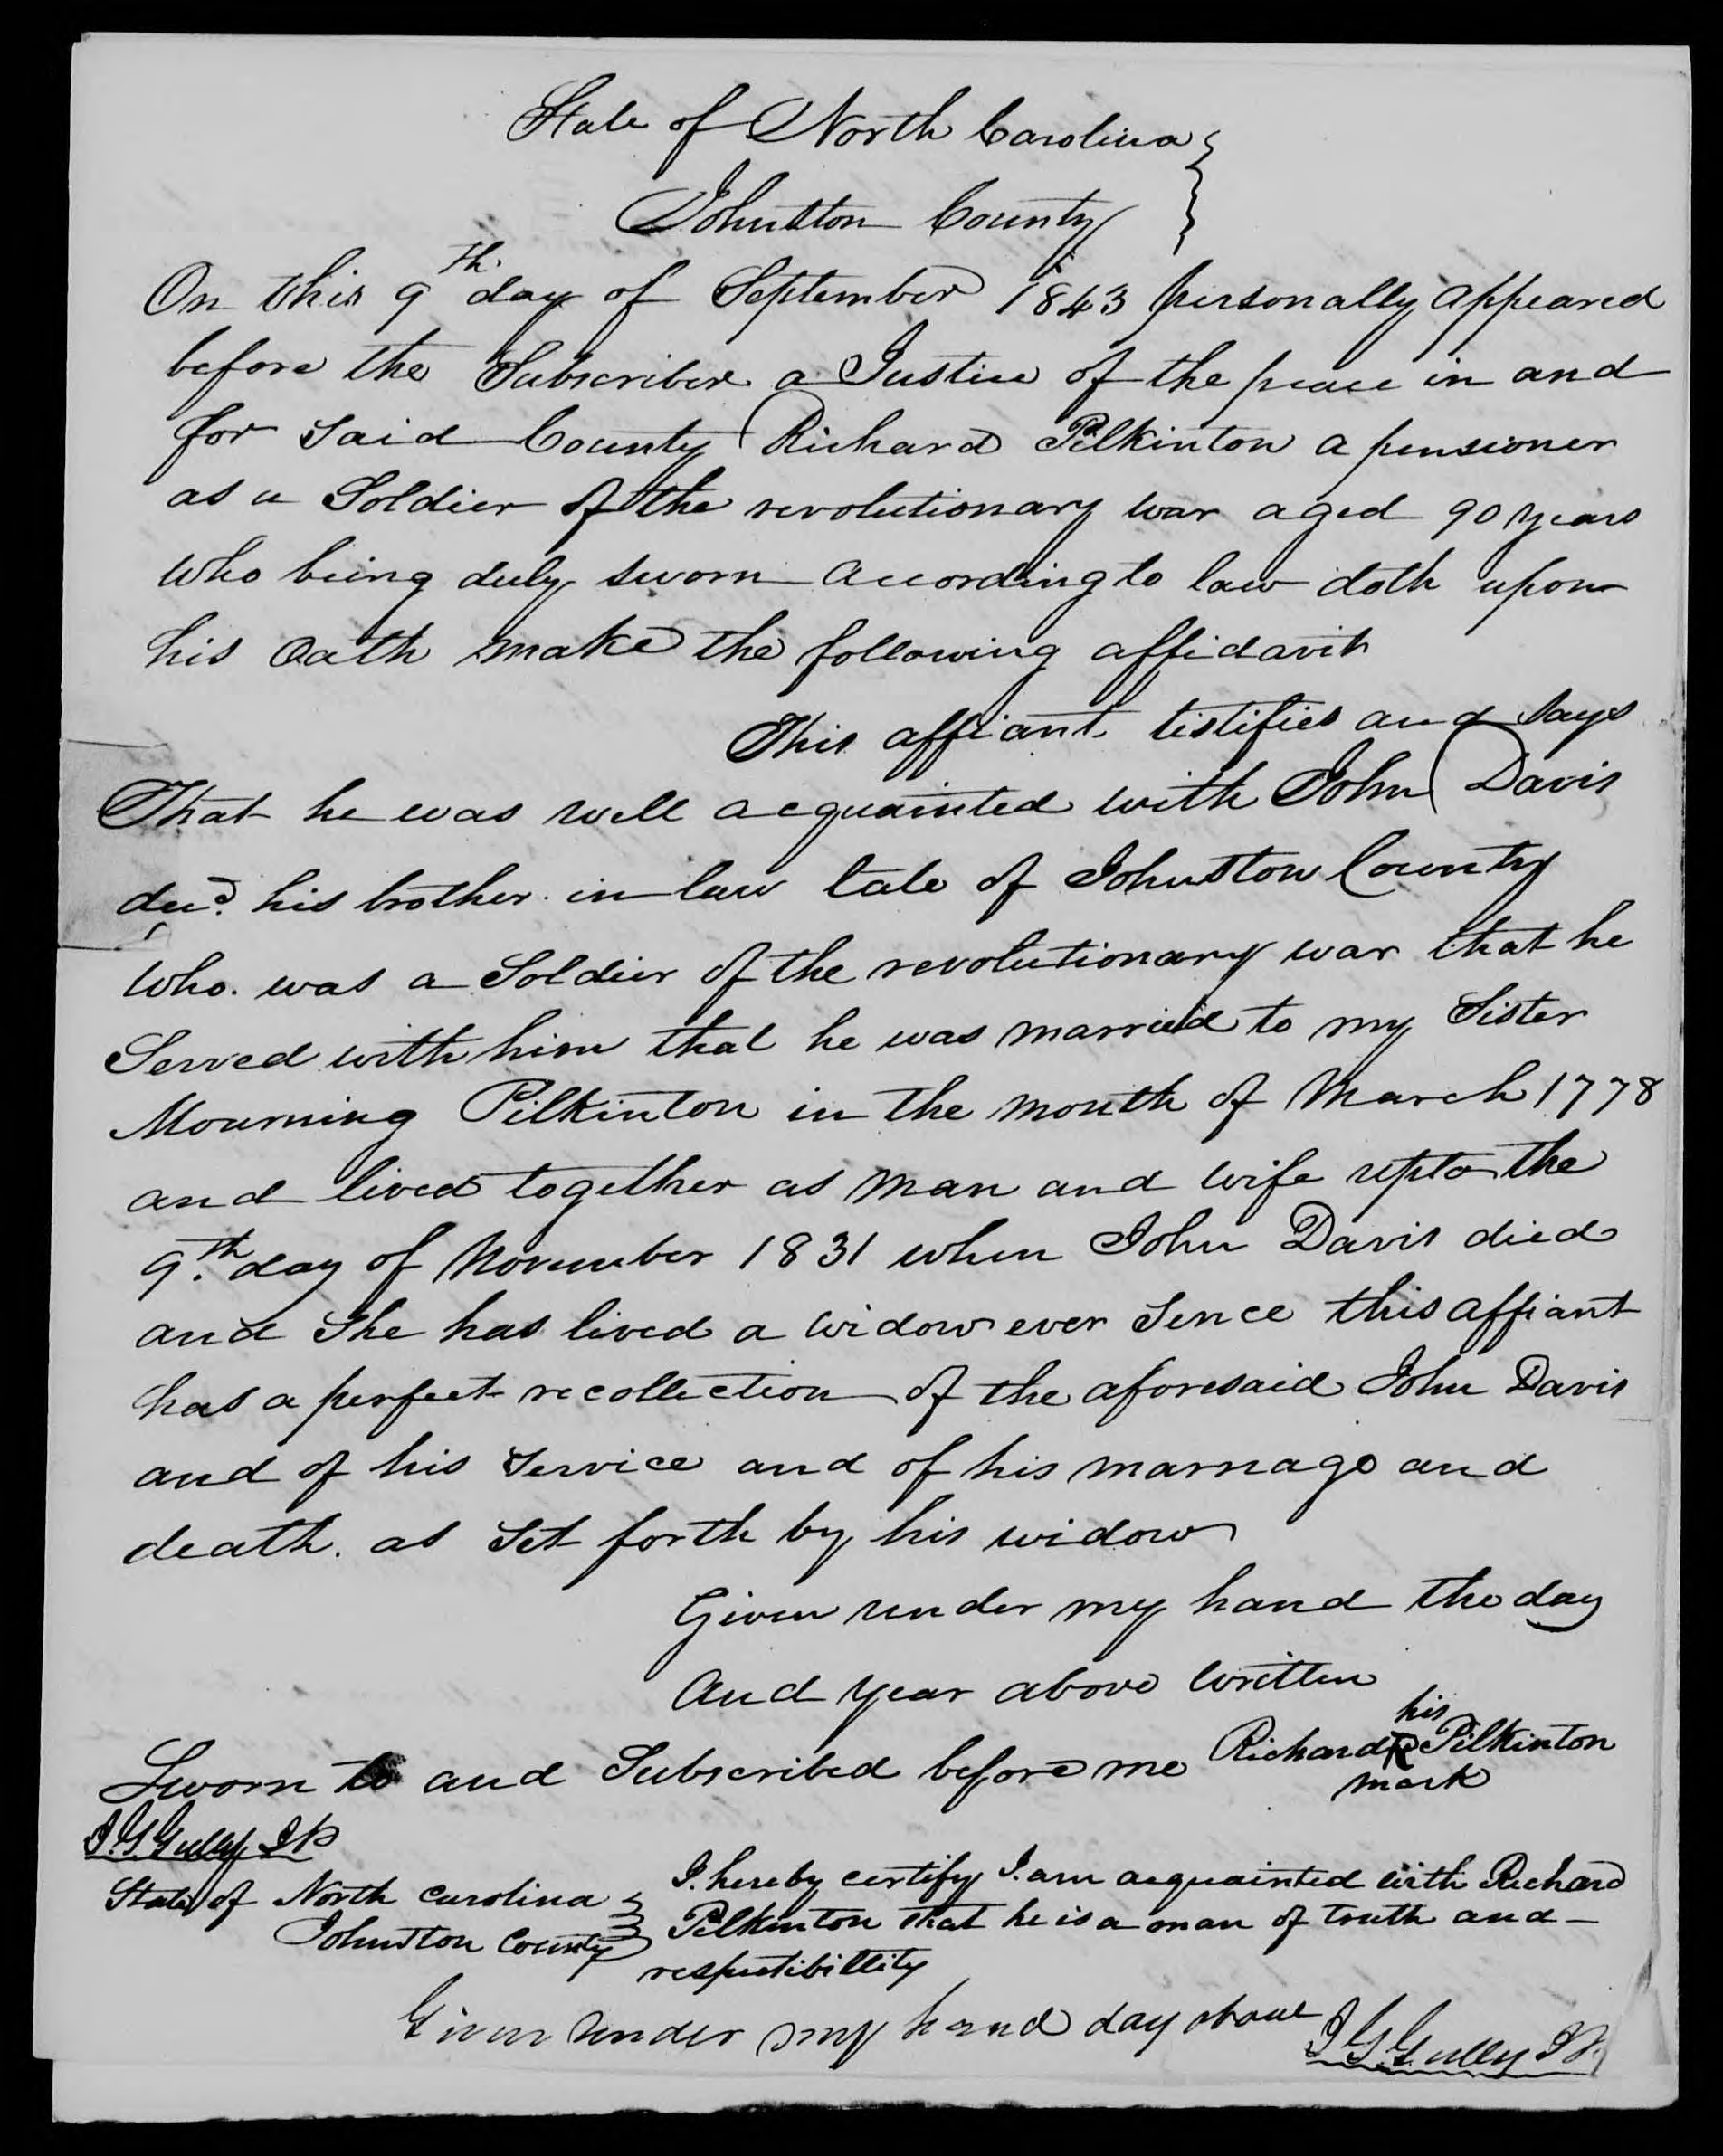 State of North Carolina }
Johnston County }
On this 9th day of September 1843 personally appeared
before the Subscriber a Justice of the peace in and
for Said County Richard Pilkinton a pensioner
as a Soldier of the revolutionary war aged 90 years
who being duly sworn according to law doth upon
his Oath make the following affidavit
This affiant testifies and says
That he was well acquainted with John Davis
decd. his brother in law late of Johnston County
who was a Soldier of the revolutionary war that he
Served with him that he was married to my Sister
Mourning Pilkinton in the month of March 1778
and lived together as man and wife upto the
9th. day of November 1831 when John Davis died
and She has lived a widow ever Sence this affiant
has a perfect recollection of the aforesaid John Davis
and of his Service and of his marriage and
death. as Set forth by his widow
Given under my hand the day
And year above written
his
Sworn to and Subscribed before me Richard R Pilkinton
mark
J. G. Gully JP
State of North Carolina } I hereby certify I am acquainted with Richard
Johnston County } Pilkinton that he is a man of truth and
respectibillity
Given under my hand day above
J. G. Gully JP